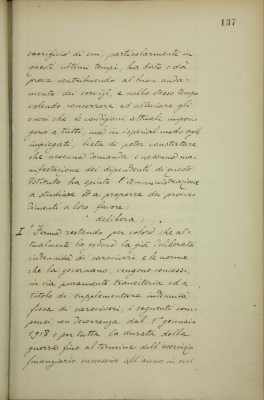 137
sacrificio di cui, particolarmente in
questi ultimi tempi, ha dato e dà
prova contribuendo al buon anda-
mento dei servizi, e nello stesso tempo
volendo concorrere ad alleviare gli
oneri che le condizioni attuali impon-
gono a tutti, ma in ispecial modo agli
impiegati, lieta di poter constatare
che nessuna domanda e nessuna ma-
nifestazione dei dipendenti di codesto
Istituto ha spinto l'Amministrazione
a studiare ed a proporre dei provve-
dimenti a loro favore;
delibera:
I Fermo restando per coloro che at-
tualmente la godono la già deliberata
indennità di caroviveri e le norme
che la governano, vengono concessi,
in via puramente transitoria ed a
titolo di supplementare indennità
fissa di caroviveri, i seguenti com-
pensi, con decorrenza dal 1° gennaio
1918 e per tutta la durata della
guerra fino al termine dell'esercizio
finanziario successivo all'anno in cui